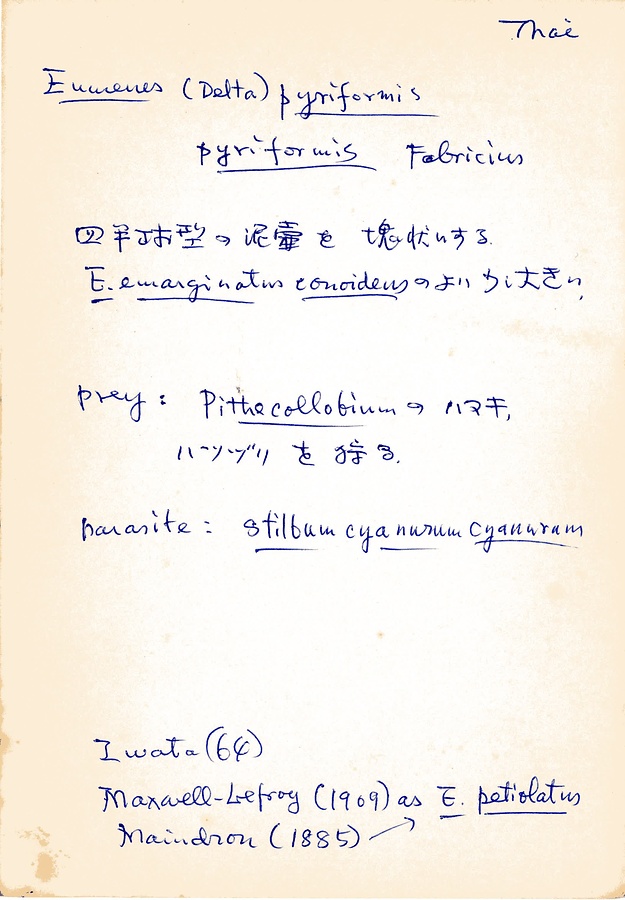 Thai
Eumenes (Delta) pyriformis
pyriformis Fabricius
半球型の泥壷を 塊状にする.
E. emarginatus conoideus のより 大きい,
prey: Pithecollobium の ハマキ,
ハツヅリ を 狩る.
parasite: Stilbum cyanurum cyanurum
Iwata (64)
Maxwell-Lefroy (1909) as E. petiolatus
Maindron (1885)